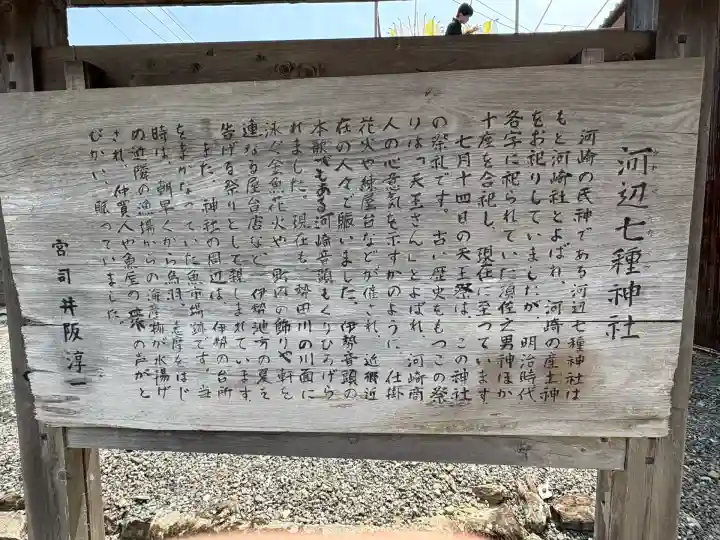 河辺七種神社
河崎の氏神である河辺七種神社は
もと河崎社とよばれ、河崎の産土神
をお祀りしていましたが、明治時代
各字に祀られていた須佐之男神ほか
十座を合祀し、現在に至っています
七月十四日の天王祭は、この神社
の祭礼です。古い歴史をもつこの祭
りは「天王さん」とよばれ、河崎商
人の心意気を示すかのように、仕掛
花火や練屋台などが催され、近郷近
在の人々で賑いました。伊勢音頭の
本歌でもある河崎音頭もくりひろげら
れました。現在も、勢田川の川面に
泳ぐ金魚花火や、町内の飾りや軒を
連なる屋台店など、伊勢地方の夏を
告げる祭りとして親しまれています
また、神社の周辺は、伊勢の台所
をまかなっていた魚市場跡です。当
時は、朝早くから鳥羽、志摩をはじ
め近隣の漁場からの海産物が水揚げ
され、仲買人や魚屋の声がと
びかい、賑っていました。
宮司 井阪淳一